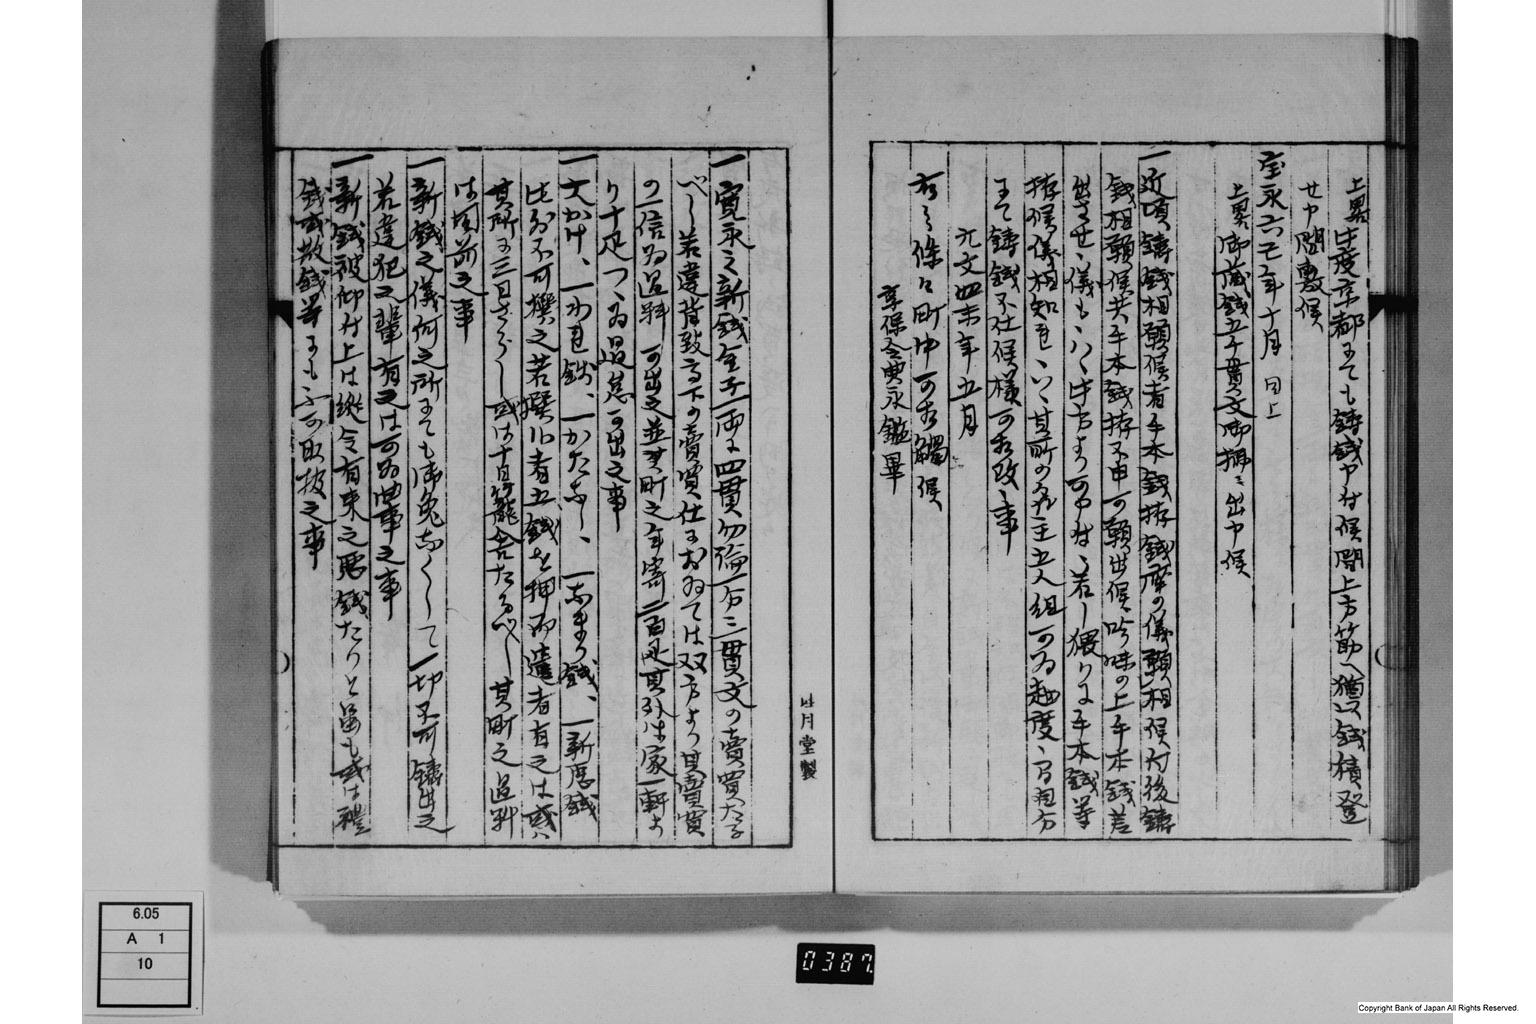 上略此度京都にても鋳銭申付候間上方筋へ猶以銭積登
せ申間敷候
宝永六丑年十月 同上
上略御蔵銭五千貫文御拂ニ出申候
一近頃鋳銭相願候者手本銭持銭座の儀願相候付後鋳
銭相願候共手本銭持不申可願出候吟味の上手本銭差
出させ、儀も
持候儀相知れ、いゝ其所の名主五人組可為越度
にて鋳銭不仕候様可相改事
元文四未年五月
右之條々町中可相觸候
享保令典永鑑畢
一寛永之新銭金子一両に四貫勿論一分に一貫文の賣買たる
べし若違背致高下の賣買仕におゐては双方より其賣買
の一倍為過料可出之並其町之年寄二百疋其外は家一軒よ
り十疋つゝ為過怠可出之事
一大かけ、一われ銭、一かたなし、一なまり銭、一新悪銭
此外不可撰之若撰候者立銭を押而遣者有之は或ハ
其所に三日さらし或は十日籠舎たるべし其町之過料
は同前之事
一新銭之儀何之所にても御免なくして一切不可鋳出之
若違犯之輩有之は可為曲事之事
一新銭被仰付上は縦令有来之悪銭たりと雖も或は禮
銭或散銭等にも不可取扱之事
月堂製
6.05
A 1
10
0387.
Copyright Bank of Japan All Rights Reserved.